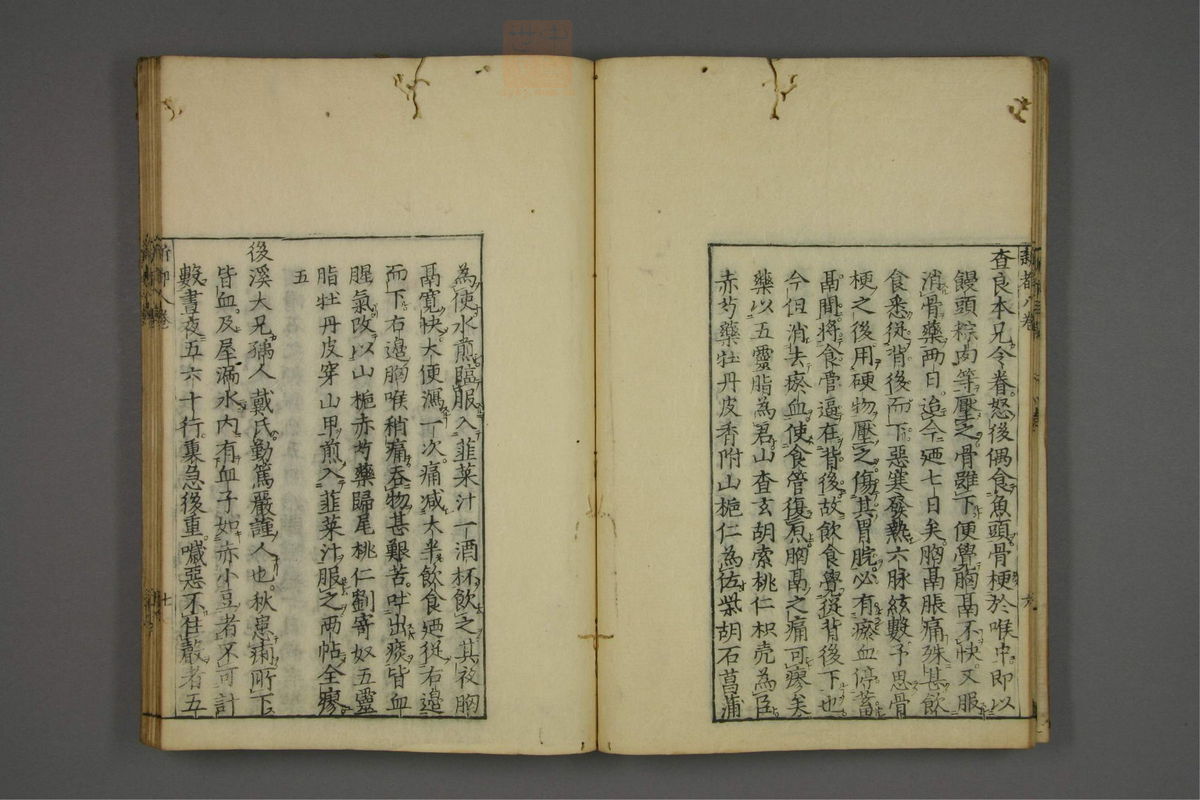 查良本兄令眷怒後偶食魚頭骨梗於喉中即以
饅頭粽肉等壓之骨雖下便覺胸鬲不快又服
消骨藥兩日迨今廼七日矣胸鬲脹痛殊甚飲
食悉從背後而下惡寒發熱六脉絃數予思骨
梗之後用硬物壓之傷其胃脘必有瘀血停蓄
鬲間將食管逼在背後故飲食覺從背後下也
今但消去瘀血使食管復原胸鬲之痛可瘳矣
藥以五靈脂為君山查玄胡索桃仁枳壳為臣
赤芍藥牡丹皮香附山梔仁為佐柴胡石菖蒲
為使水煎臨服入韮菜汁一酒杯飲之其夜胸
鬲寬快大便瀉一次痛减大半飲食廼從右邉
而下右邉胸喉稍痛吞物甚艱苦吐出痰皆血
腥氣改以山梔赤芍藥歸尾桃仁劉寄奴五靈
脂牡丹皮穿山甲煎入韮菜汁服之兩帖全瘳
五
後溪大兄孺人戴氏勤篤嚴謹人也秋患痢所下
皆血及屋漏水內有血子如赤小豆者不可計
數晝夜五六十行裏急後重噦惡不住聲者五